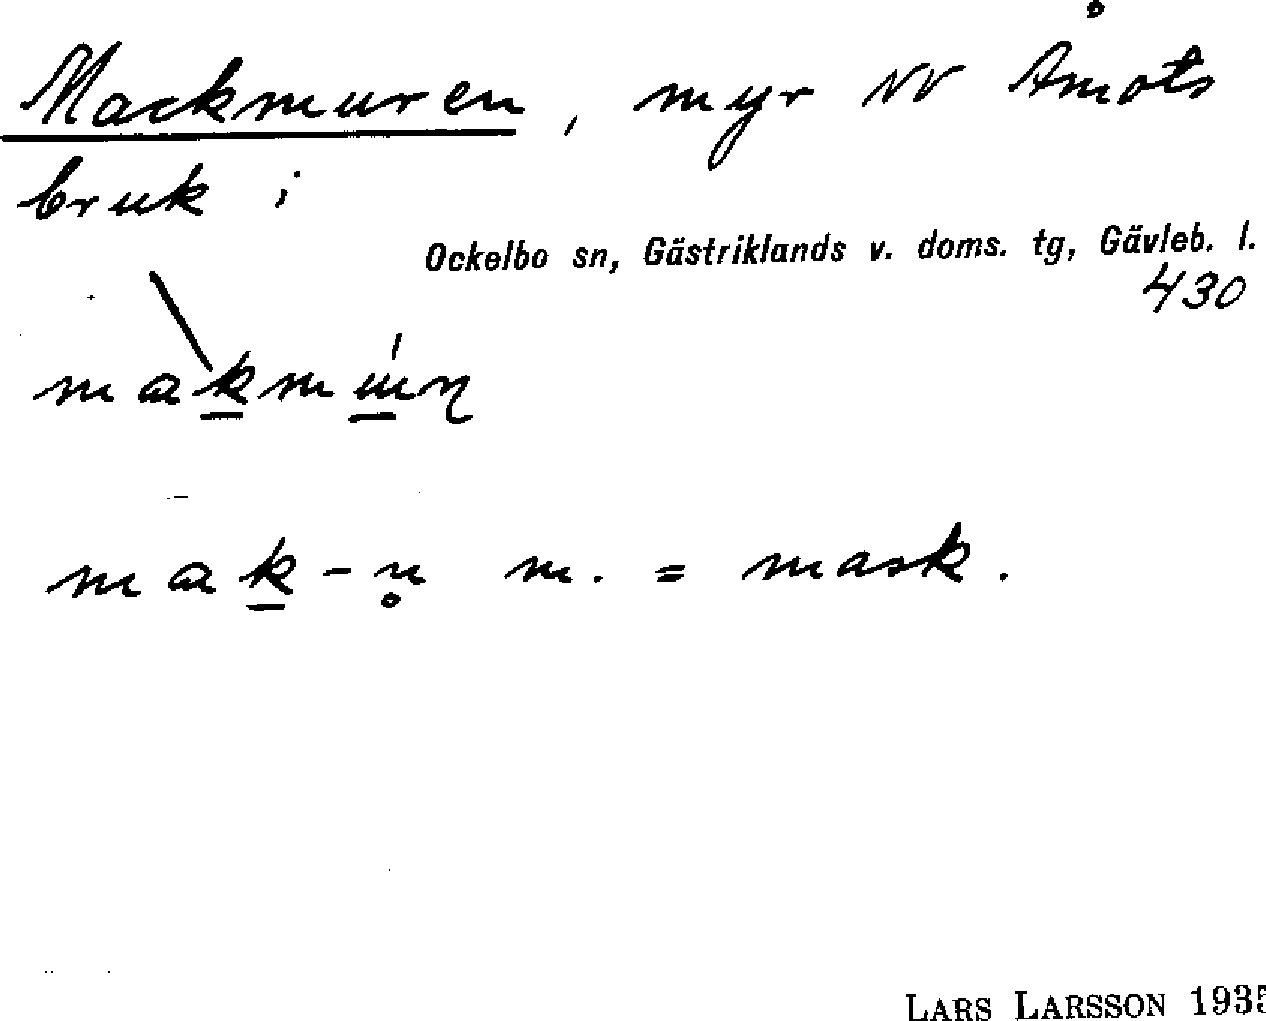 Mackmuren, myr NV Åmots
bruk i
Ockelbo sn, Gästriklands v. doms. tg, Gävleb. l.
430
mak-n m. = mask.
LARS LARSSON 1935